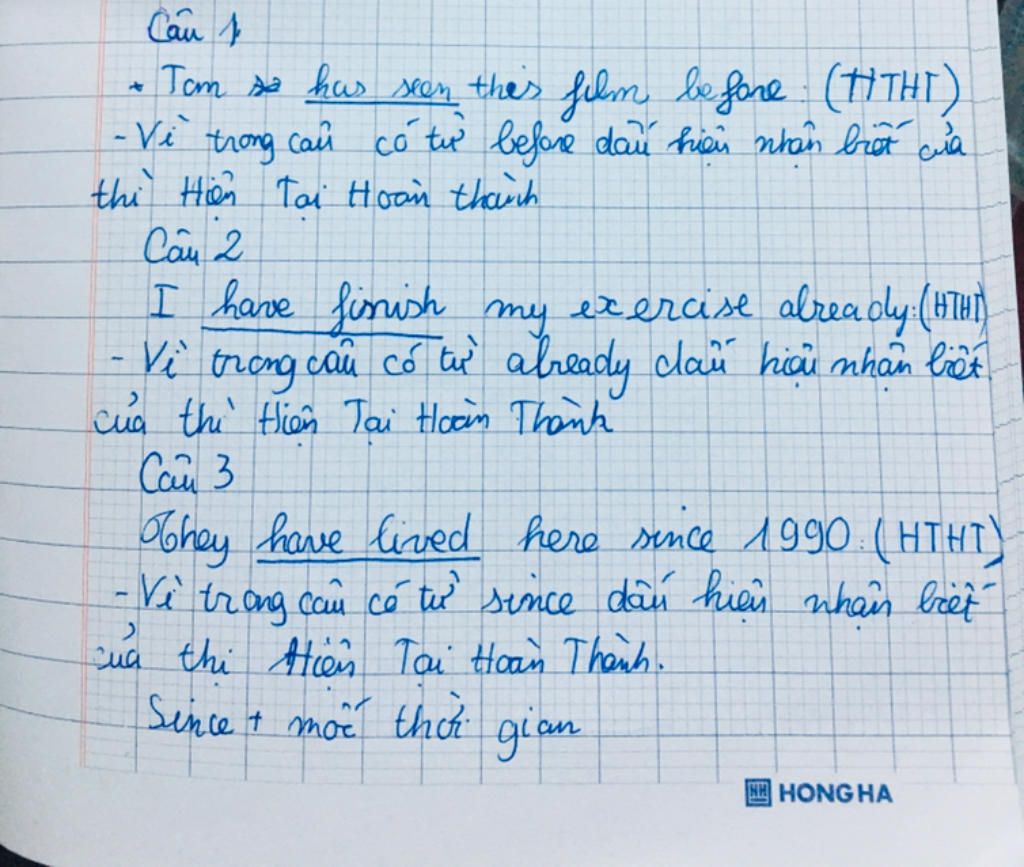 Câu 1
* Tom has seen this film before: (HTHT)
- Vì trong câu có từ before dấu hiệu nhận biết của
thì Hiện Tại Hoàn thành
Câu 2
I have finish my exercise already: (HTHT)
- Vì trong câu có từ already dấu hiệu nhận biết
của thì Hiện Tại Hoàn Thành
Câu 3
They have lived here since 1990: (HTHT)
- Vì trong câu có từ since dấu hiệu nhận biết
của thị Hiện Tại Hoàn Thành.
Since + mốc thời gian
HH HONG HA